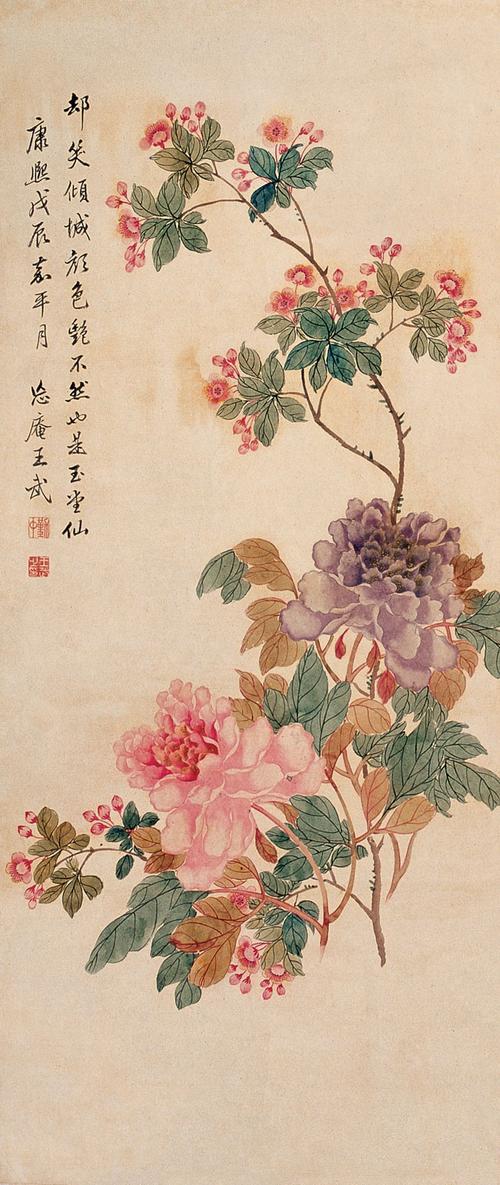 却笑傾城顏色艷不然也是玉堂仙
康熙戊辰嘉平月 忘庵王武